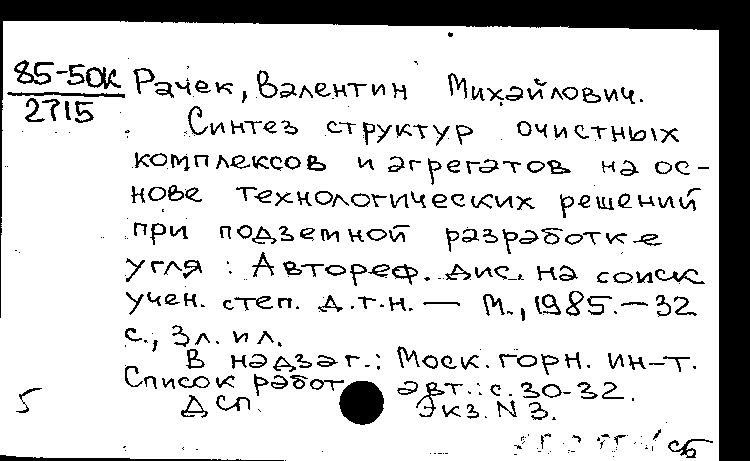 85-50К Рачек, Валентин Михайлович.
2715
Синтез структур очистных
комплексов и агрегатов на ос-
нове технологических решений
при подземной разработке
угля : Автореф. дис. на соиск
учен. степ. д.т.н. — М., 1985. — 32
с., 3 л. ил.
В надзаг.: Моск. горн. ин-т.
Список работ авт.: с. 30-32.
5 ДСП. Экз. N 3.
сб